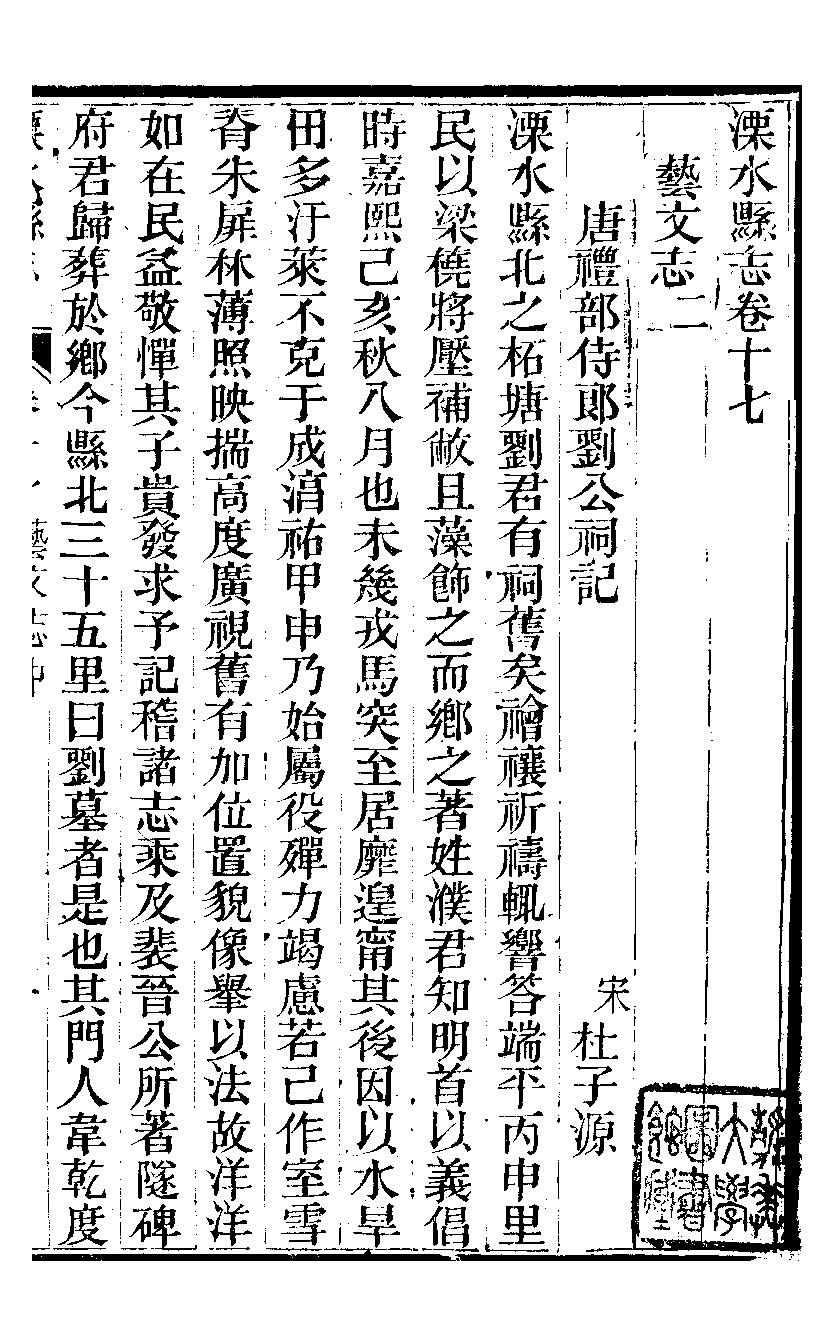 溧水縣志卷十七
藝文志二
唐禮部侍郎劉公祠記
宋 杜子源
溧水縣北之柘塘劉君有祠舊矣禬禳祈禱輒響答端平丙申里
民以梁橈將壓補敝且藻飾之而鄉之著姓濮君知明首以義倡
時嘉熙己亥秋八月也未幾戎馬突至居靡遑甯其後因以水旱
田多汙萊不克于成淯祐甲申乃始屬役殫力竭慮若己作室雪
脊朱扉林薄照映揣高度廣視舊有加位置貌像舉以法故洋洋
如在民益敬憚其子貴發求予記稽諸志乘及裴晉公所著隧碑
府君歸葬於鄉今縣北三十五里曰劉墓者是也其門人韋乾度